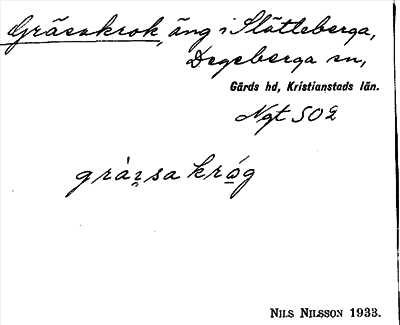 Gräsakrok, äng i Slätteberga,
Degeberga sn,
Gärds hd, Kristianstads län.
Ngt 502
gràꭇsa krǫ́g
NILS NILSSON 1933.